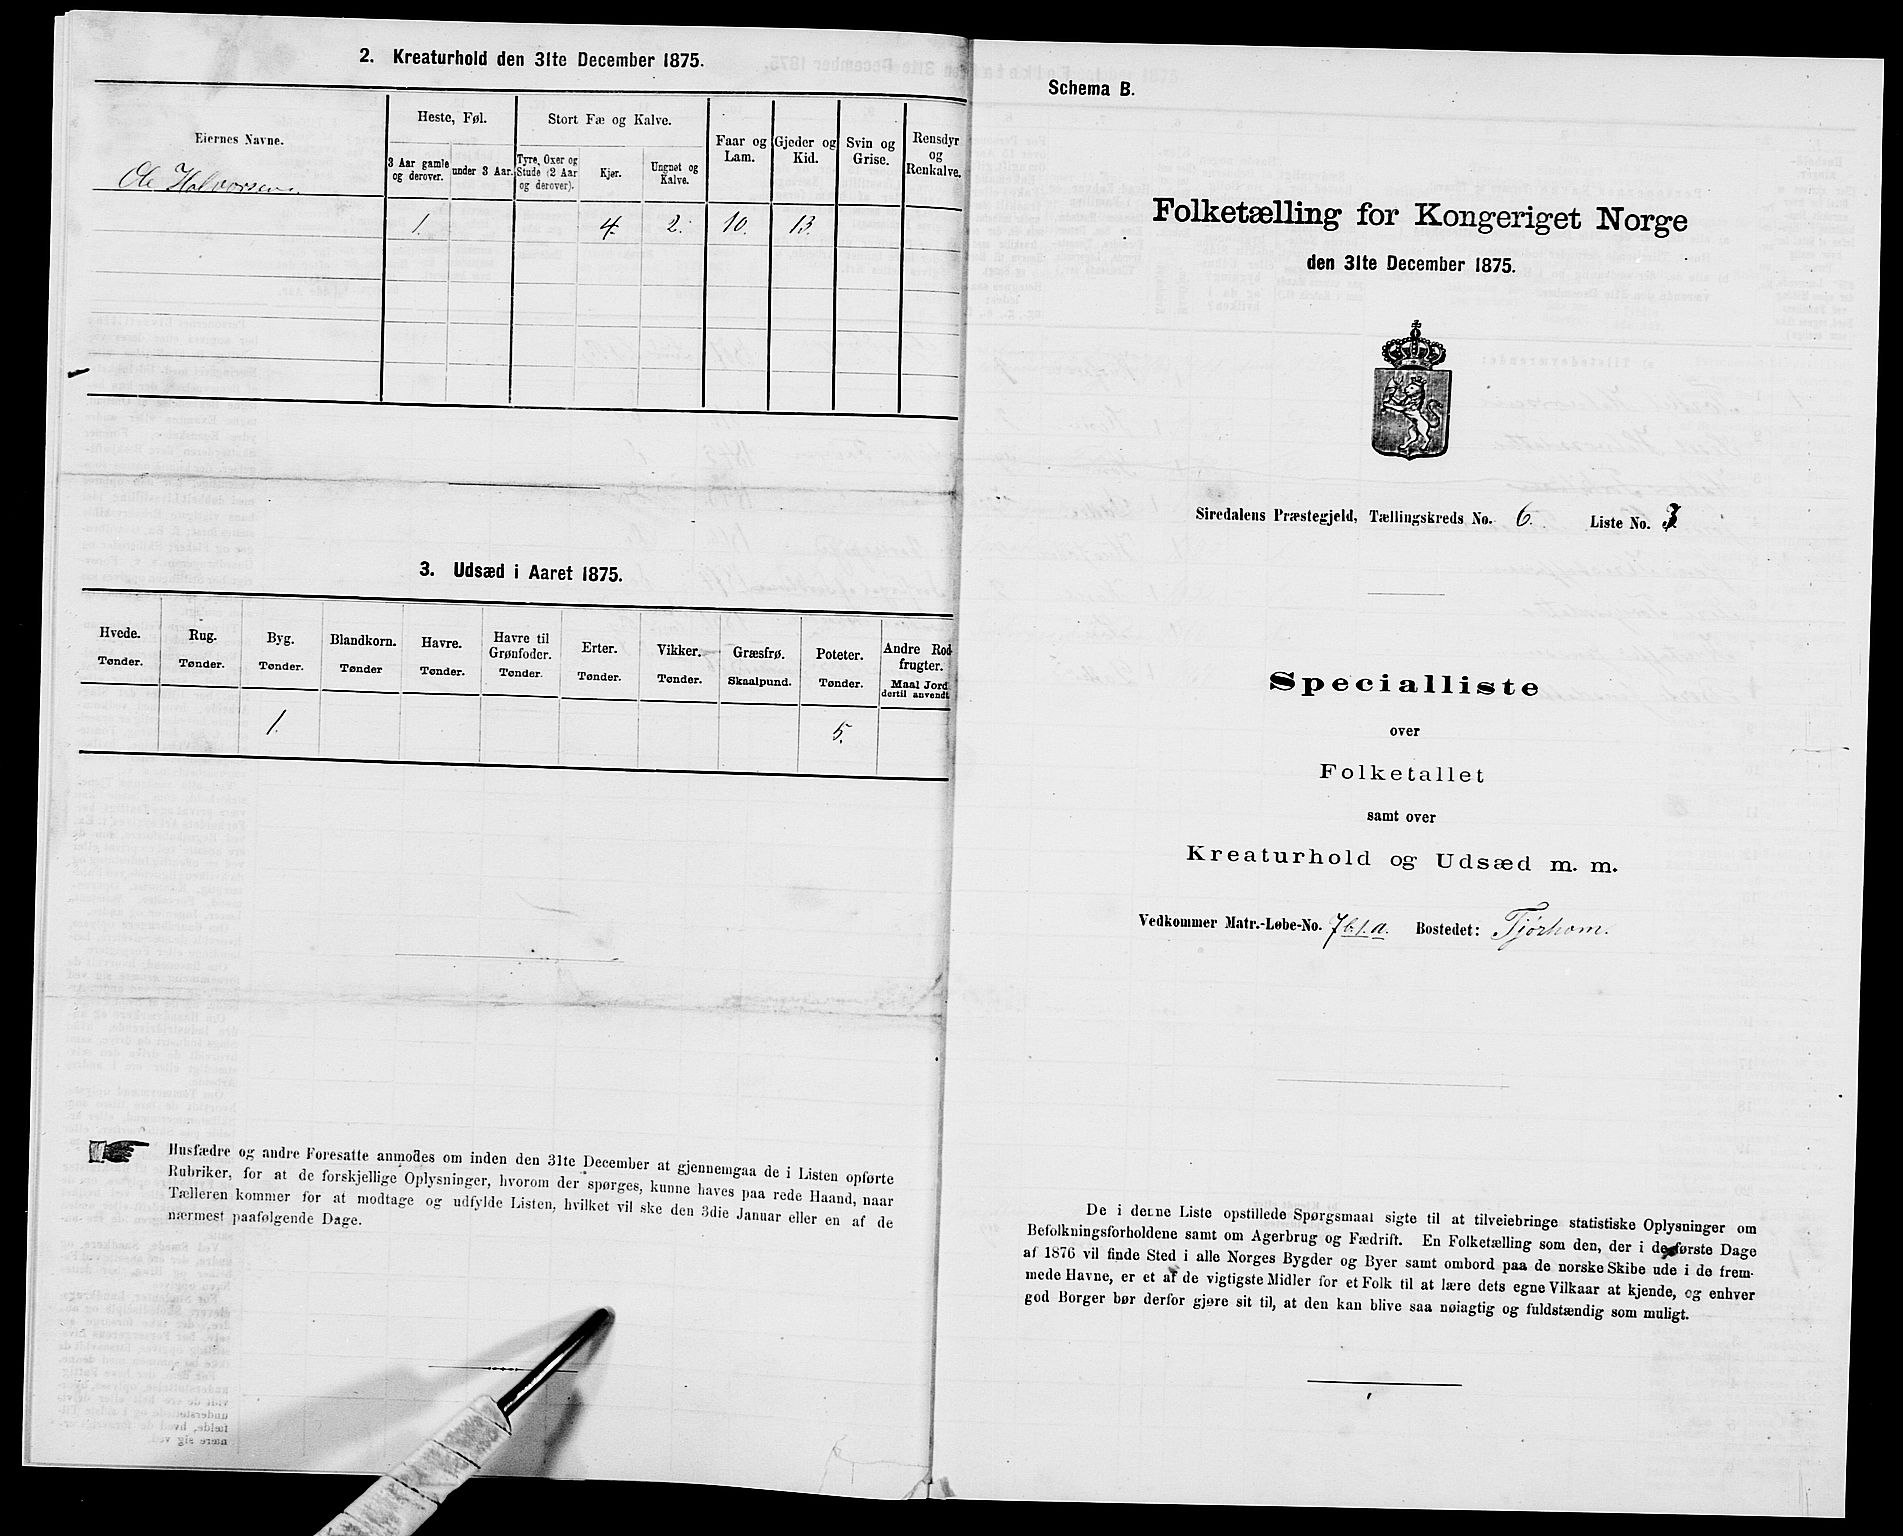 2. Kreaturhold den 31te December 1875.
Eiernes Navne.
Heste, Føl.
Stort Fæ og Kalve.
Faar og Lam.
Gjeder og Kid.
Svin og Grise.
Rensdyr og Renkalve.
3 Aar gamle og derover.
under 3 Aar.
Tyre, Oxer og Stude (2 Aar og derover).
Kjør.
Ungnøt og Kalve.
Ole Halvorsen.
1. 4. 2. 10. 13.
3. Udsæd i Aaret 1875.
Hvede. Rug. Byg. Blandkorn. Havre. Havre til Grønfoder. Erter. Vikker. Græsfrø. Poteter. Andre Rodfrugter.
Tønder. Tønder. Tønder. Tønder Tønder. Tønder. Tønder. Tønder. Skaalpund. Tønder. Maal Jord dertil anvendt.
1. 5.
Husfædre og andre Foresatte anmodes om inden den 31te December at gjennemgaa de i Listen opførte
Rubriker, for at de forskjellige Oplysninger, hvorom der spørges, kunne haves paa rede Haand, naar
Tælleren kommer for at modtage og udfylde Listen, hvilket vil ske den 3die Januar eller en af de
nærmest paafølgende Dage.
Schema B.
Folketælling for Kongeriget Norge
den 31te December 1875.
Siredalens Præstegjeld, Tællingskreds No. 6. Liste No. 3
Specialliste
over
Folketallet
samt over
Kreaturhold og Udsæd m. m.
Vedkommer Matr.-Løbe-No. 7b1.a. Bostedet: Tjørhom.
De i denne Liste opstillede Spørgsmaal sigte til at tilveiebringe statistiske Oplysninger om
Befolkningsforholdene samt om Agerbrug og Fædrift. En Folketælling som den, der i de første Dage
af 1876 vil finde Sted i alle Norges Bygder og Byer samt ombord paa de norske Skibe ude i de frem-
mede Havne, er et af de vigtigste Midler for et Folk til at lære dets egne Vilkaar at kjende, og enhver
god Borger bør derfor gjøre sit til, at den kan blive saa nøiagtig og fuldstændig som muligt.